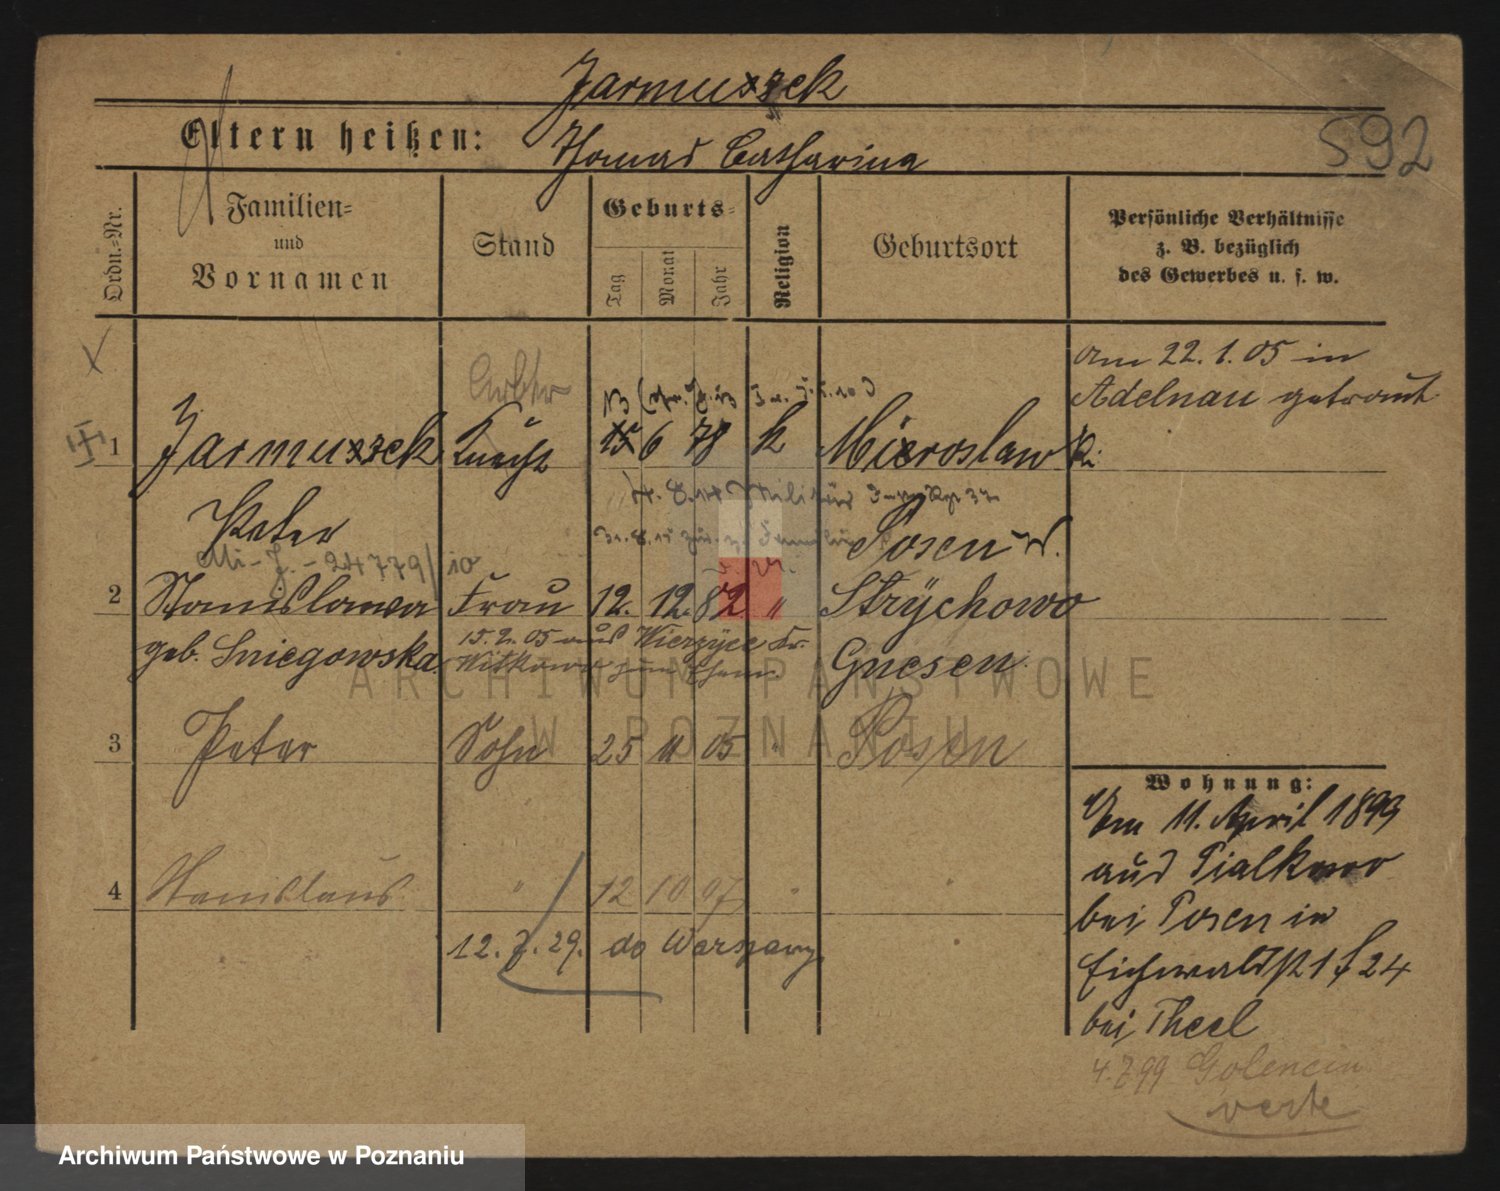 Jarmuszek
Eltern heißen: Thomas Catharina
592
Ordn.-Nr.
Familien-
und
Vornamen
Stand
Geburts-
Tag
Monat
Jahr
Religion
Geburtsort
Persönliche Verhältnisse
z. B. bezüglich
des Gewerbes u. s. w.
am 22.1.05 in
Adelnau getraut
1 Jarmuszek Knecht 6 78 k Miroslawki
Peter Posen W.
Mi-J.-24779/10
2 Stanislawa Frau 12. 12. 82 " Strychowo
geb. Sniegowska Gnesen
15.2.05 aus Wierzyce Kr.
Witkowo zum
3 Peter Sohn 25 11 05 " Posen
4 Stanislaus " 12 10 07 " "
12. 7. 29. do Warszawy
Wohnung:
Am 11. April 1899
aus Pialkowo
bei Posen in
Eichwaldstr 24
bei Theel
4.7.99 Golencin
verte
ARCHIWUM PAŃSTWOWE
W POZNANIU
Archiwum Państwowe w Poznaniu